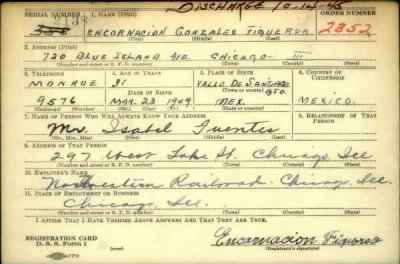 DISCHARGE 10-14-45
SERIAL NUMBER 1. NAME (Print) ORDER NUMBER
ENCARNACION GONZALES FIGUEROA 2352
(First) (Middle) (Last)
2. ADDRESS (Print)
720 BLUE ISLAND AVE CHICAGO ILL
(Number and street or R. F. D. number) (Town) (County) (State)
3. TELEPHONE 4. AGE IN YEARS 5. PLACE OF BIRTH 6. COUNTRY OF CITIZENSHIP
MONROE 31 VALLE DE SANTIAGO GTO.
DATE OF BIRTH
9576 MAR. 23 1909 MEX. MEXICO.
7. NAME OF PERSON WHO WILL ALWAYS KNOW YOUR ADDRESS 8. RELATIONSHIP OF THAT PERSON
Mr. Isabel Fuentes
(Mr., Mrs., Miss) (First) (Middle) (Last)
9. ADDRESS OF THAT PERSON
297 West Lake St. Chicago Ill
(Number and street or R. F. D. number) (Town) (County) (State)
10. EMPLOYER'S NAME
Northwestern Railroad - Chicago, Ill.
11. PLACE OF EMPLOYMENT OR BUSINESS
Chicago, Ill.
(Number and street or R. F. D. number) (Town) (County) (State)
I AFFIRM THAT I HAVE VERIFIED ABOVE ANSWERS AND THAT THEY ARE TRUE.
REGISTRATION CARD
D. S. S. Form 1
Encarnacion Figueroa
(Registrant's signature)